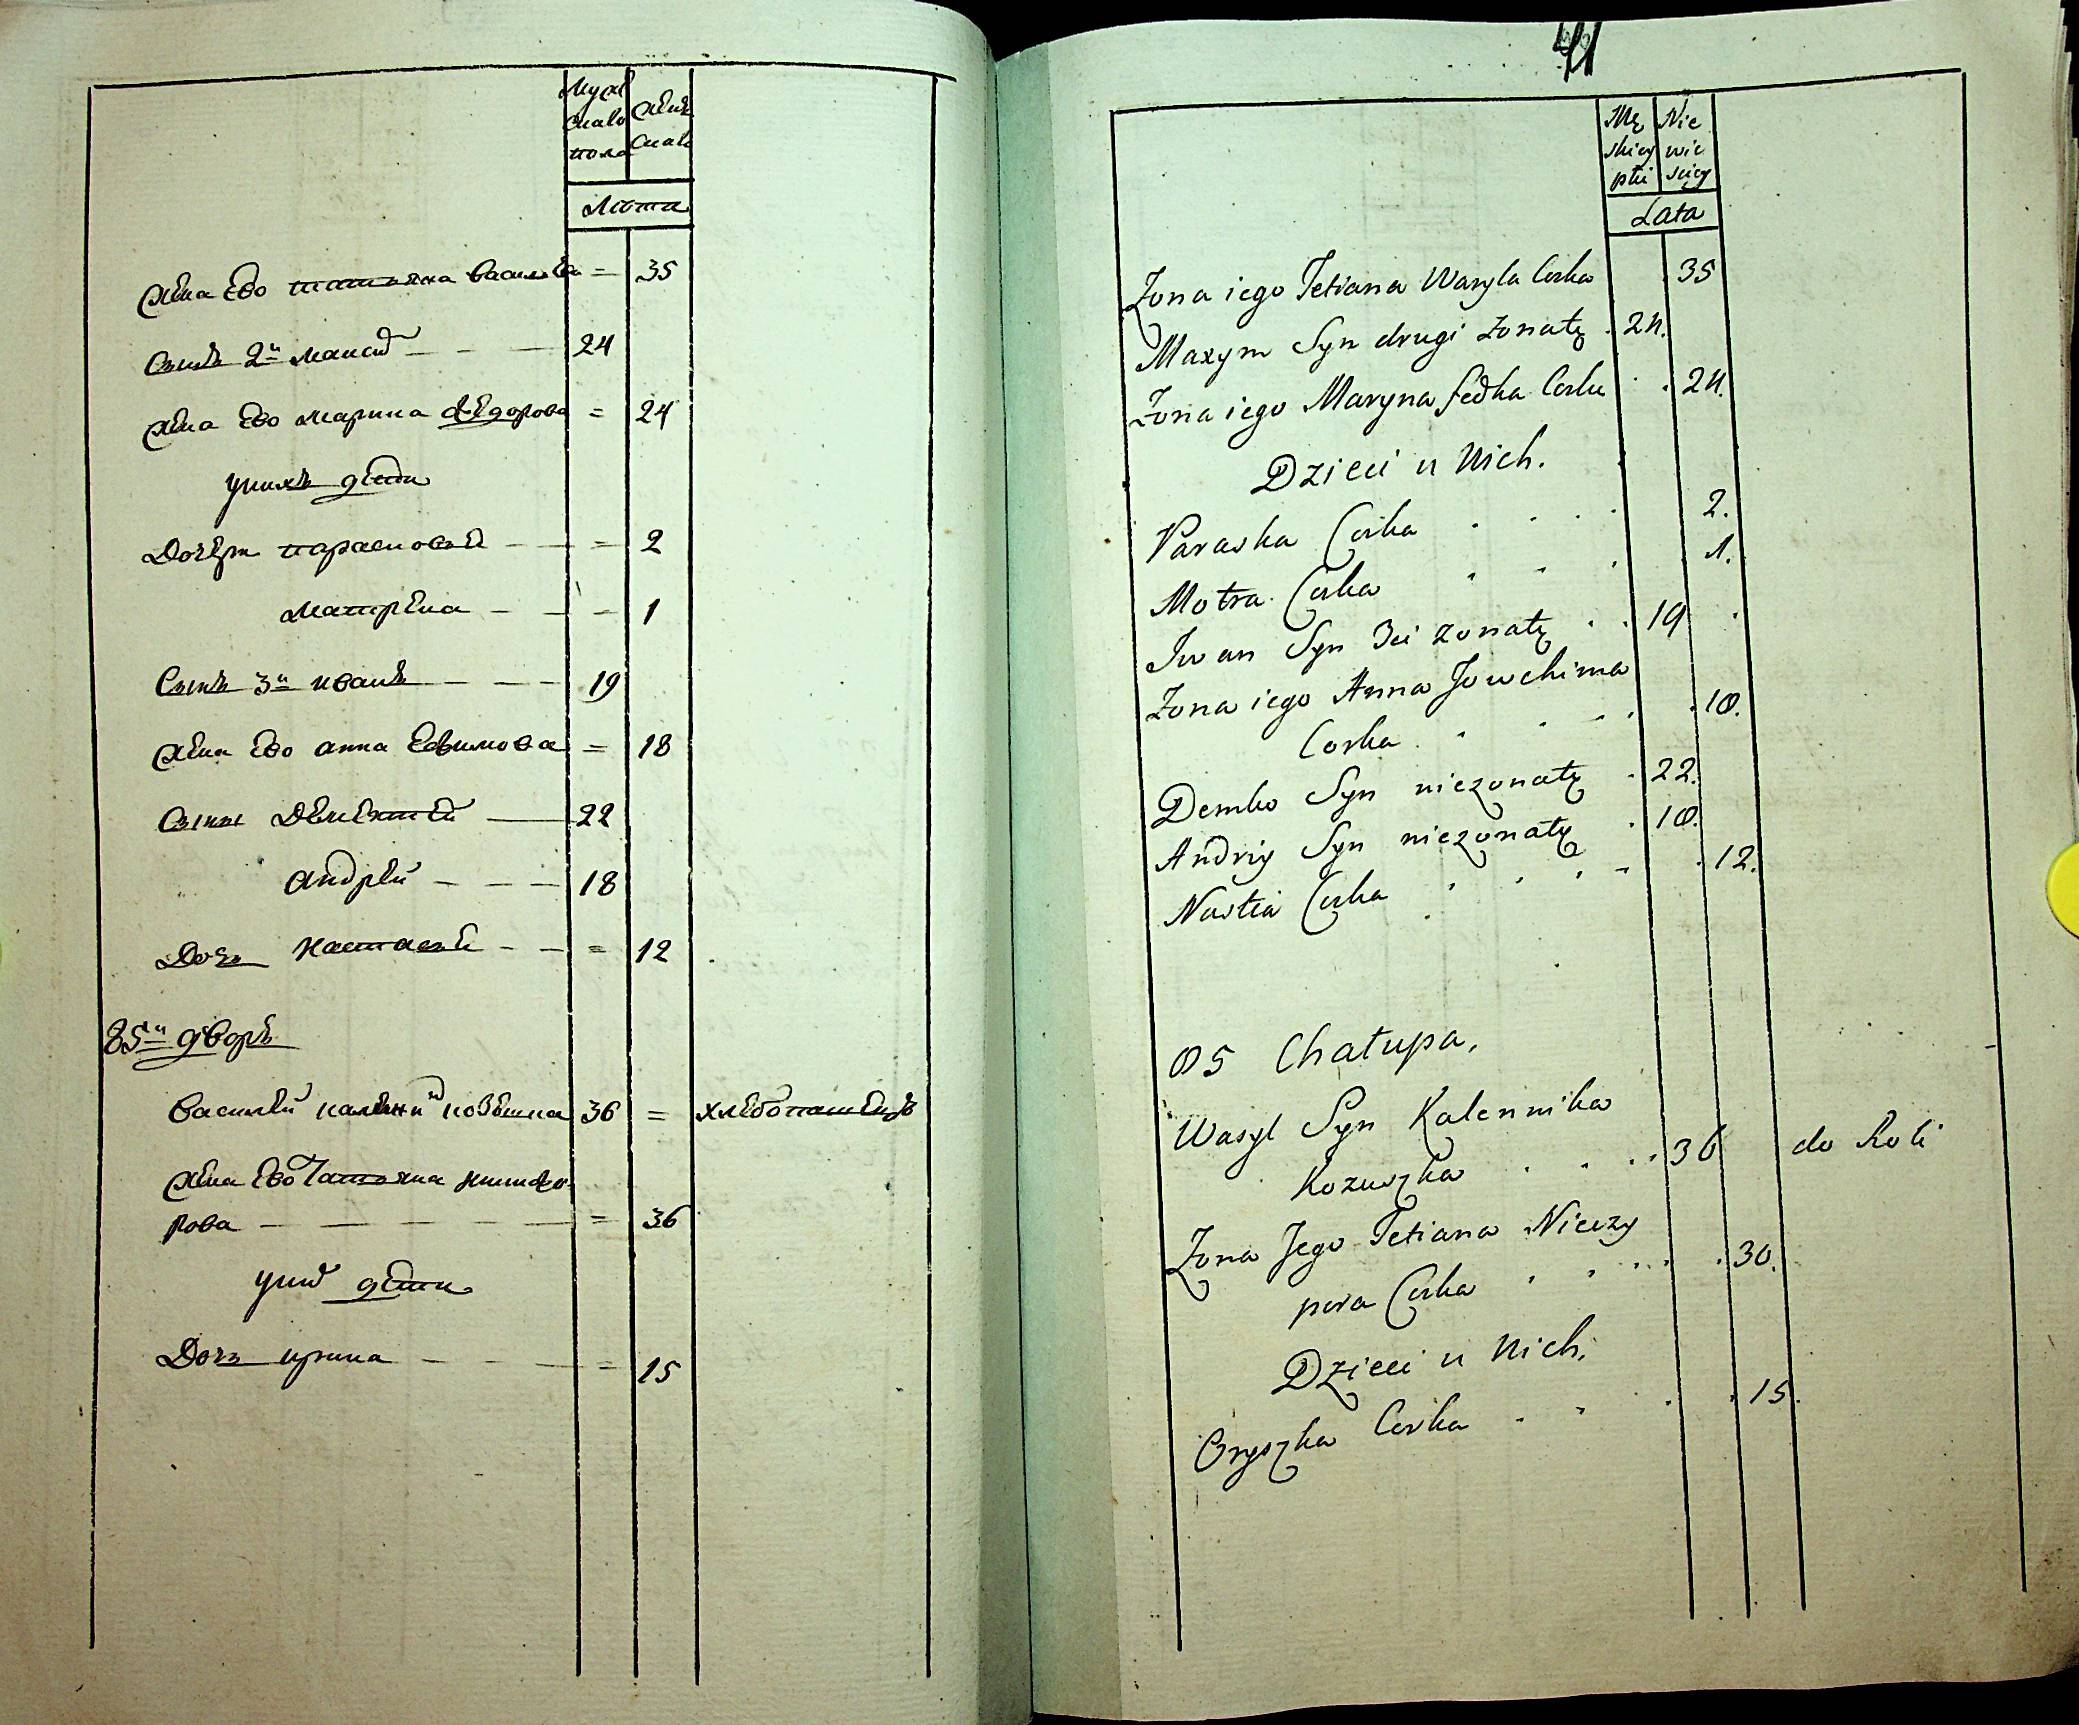 Муж
скаго
пола
Жен
скаг
Лѣта
Жена Ево татьяна васильева = 35
Сынъ 2й максим 24
Жена Ево марина Федорова = 24
у нихъ дети
Дочери парасковей = 2
матрена 1
Сынъ 3й иванъ 19
Жена Ево анна Евфимова = 18
Сыны Дементей 22
андрей 18
Дочь настасей = 12
85й дворъ
Василей каленик кожушка 36 = хлебопашецъ
Жена Ево Татьяна ничифо
рова = 36
у них дети
Дочь ирина = 15
41
Mę
skiey
płci
Nie
wie
sciey
Lata
Zona iego Tetiana Wasyla Corka 35
Maxym Syn drugi zonaty 24.
Zona iego Maryna Fedka Corka 24.
Dzieci u Nich.
Paraska Corka 2.
Motra Corka 1.
Iwan Syn 3ci zonaty 19
Zona iego Anna Jowchima
Corka 18.
Demko Syn niezonaty 22.
Andriy Syn niezonaty 18.
Nastia Corka 12.
85 Chałupa,
Wasyl Syn Kalennika
Kozuszka 36 do Roli
Zona Jego Tetiana Niczy
pora Corka 30.
Dzieci u Nich.
Oryszka Corka 15.